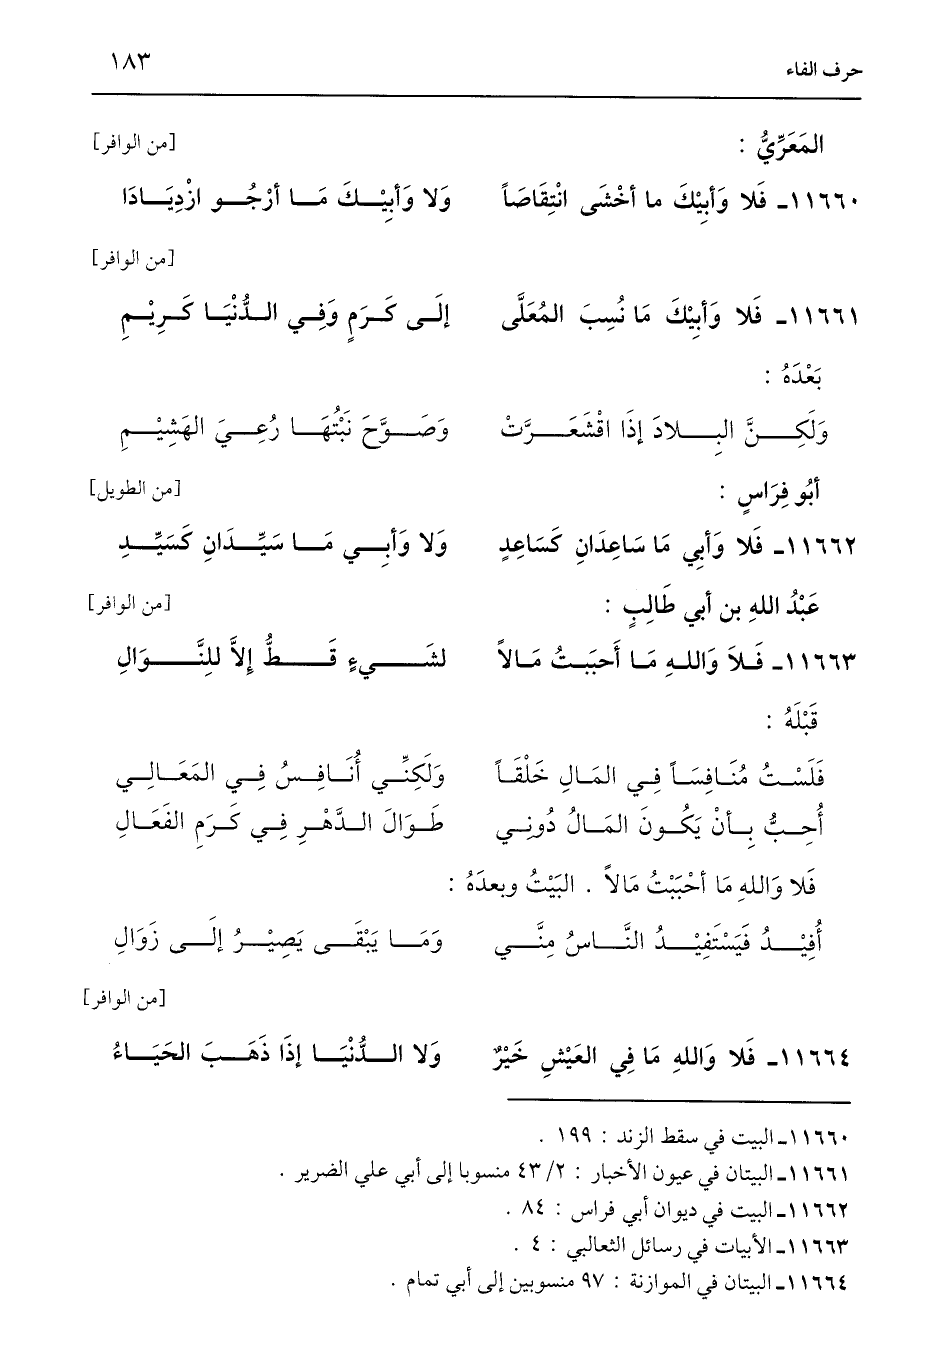 حرف الفاء ١٨٣
المَعَرِّيُّ : [من الوافر]
١١٦٦٠ـ فَلا وَأبِيْكَ ما أخْشَى انْتِقَاصَاً وَلا وَأبِيْـــكَ مَـــا أرْجُـــو ازْدِيَـــادَا
[من الوافر]
١١٦٦١ـ فَلا وَأبِيْكَ مَا نُسِبَ المُعَلَّى إلَـى كَـرَمٍ وَفِـي الـدُّنْيَـا كَـرِيْـمِ
بَعْدَهُ :
وَلَكِـــنَّ البِـــلادَ إذَا اقْشَعَـــرَّتْ وَصَـــوَّحَ نَبْتُهَـــا رُعِـــيَ الهَشِيْـــمِ
أبُو فِرَاسٍ : [من الطويل]
١١٦٦٢ـ فَلا وَأبِي مَا سَاعِدَانِ كَسَاعِدٍ وَلا وَأبِـــي مَـــا سَيِّـــدَانِ كَسَيِّـــدِ
عَبْدُ اللهِ بن أبي طَالِبٍ : [من الوافر]
١١٦٦٣ـ فَـلاَ وَاللـهِ مَـا أَحبَبـتُ مَـالاً لشَـــيءٍ قَـــطُّ إلاَّ للِنَّـــوَالِ
قَبْلَهُ :
فَلَسْـتُ مُنَـافِسَـاً فِـي المَـالِ خَلْقَـاً وَلَكِنِّـي أُنَـافِـسُ فِـي المَعَـالِـي
أُحِـبُّ بِـأنْ يَكُـونَ المَـالُ دُونِـي طَـوَالَ الـدَّهْـرِ فِـي كَـرَمِ الفَعَـالِ
فَلا وَاللهِ مَا أحْبَبْتُ مَالاً . البَيْتُ وبعدَهُ :
أُفِيْـــدُ فَيَسْتَفِيْـــدُ النَّـــاسُ مِنَّـــي وَمَـــا يَبْقَـــى يَصِيْـــرُ إلَـــى زَوَالِ
[من الوافر]
١١٦٦٤ـ فَلا وَاللهِ مَا فِي العَيْشِ خَيْرٌ وَلا الـــدُّنْيَـــا إذَا ذَهَـــبَ الحَيَـــاءُ
١١٦٦٠ـ البيت في سقط الزند : ١٩٩ .
١١٦٦١ـ البيتان في عيون الأخبار : ٢/ ٤٣ منسوبا إلى أبي علي الضرير .
١١٦٦٢ـ البيت في ديوان أبي فراس : ٨٤ .
١١٦٦٣ـ الأبيات في رسائل الثعالبي : ٤ .
١١٦٦٤ـ البيتان في الموازنة : ٩٧ منسوبين إلى أبي تمام .